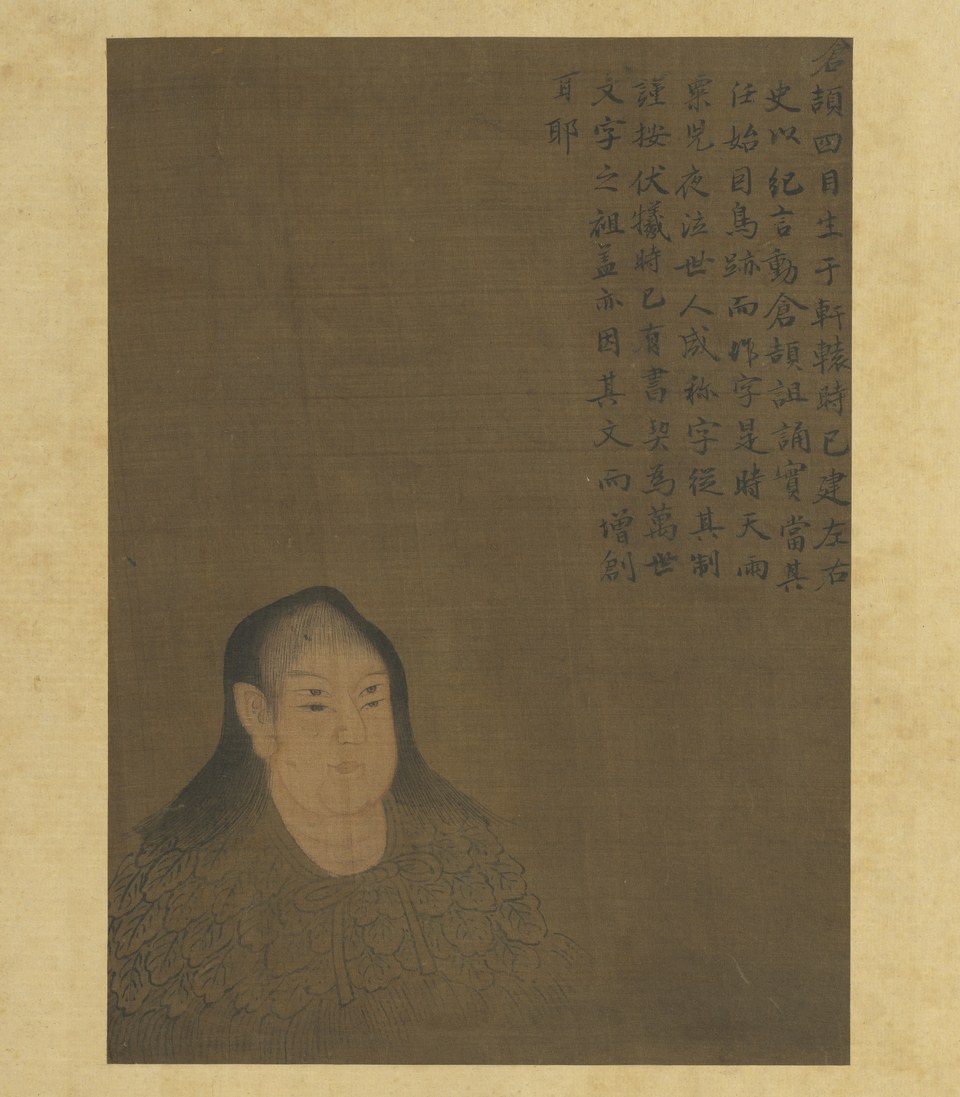 倉頡四目生于軒轅時已建左右
史以紀言動倉頡詛誦實當其
任始因鳥跡而作字是時天雨
粟児夜泣世人咸称字從其制
謹按伏犠時已有書契為萬世
文字之祖盖亦因其文而增創
耳耶